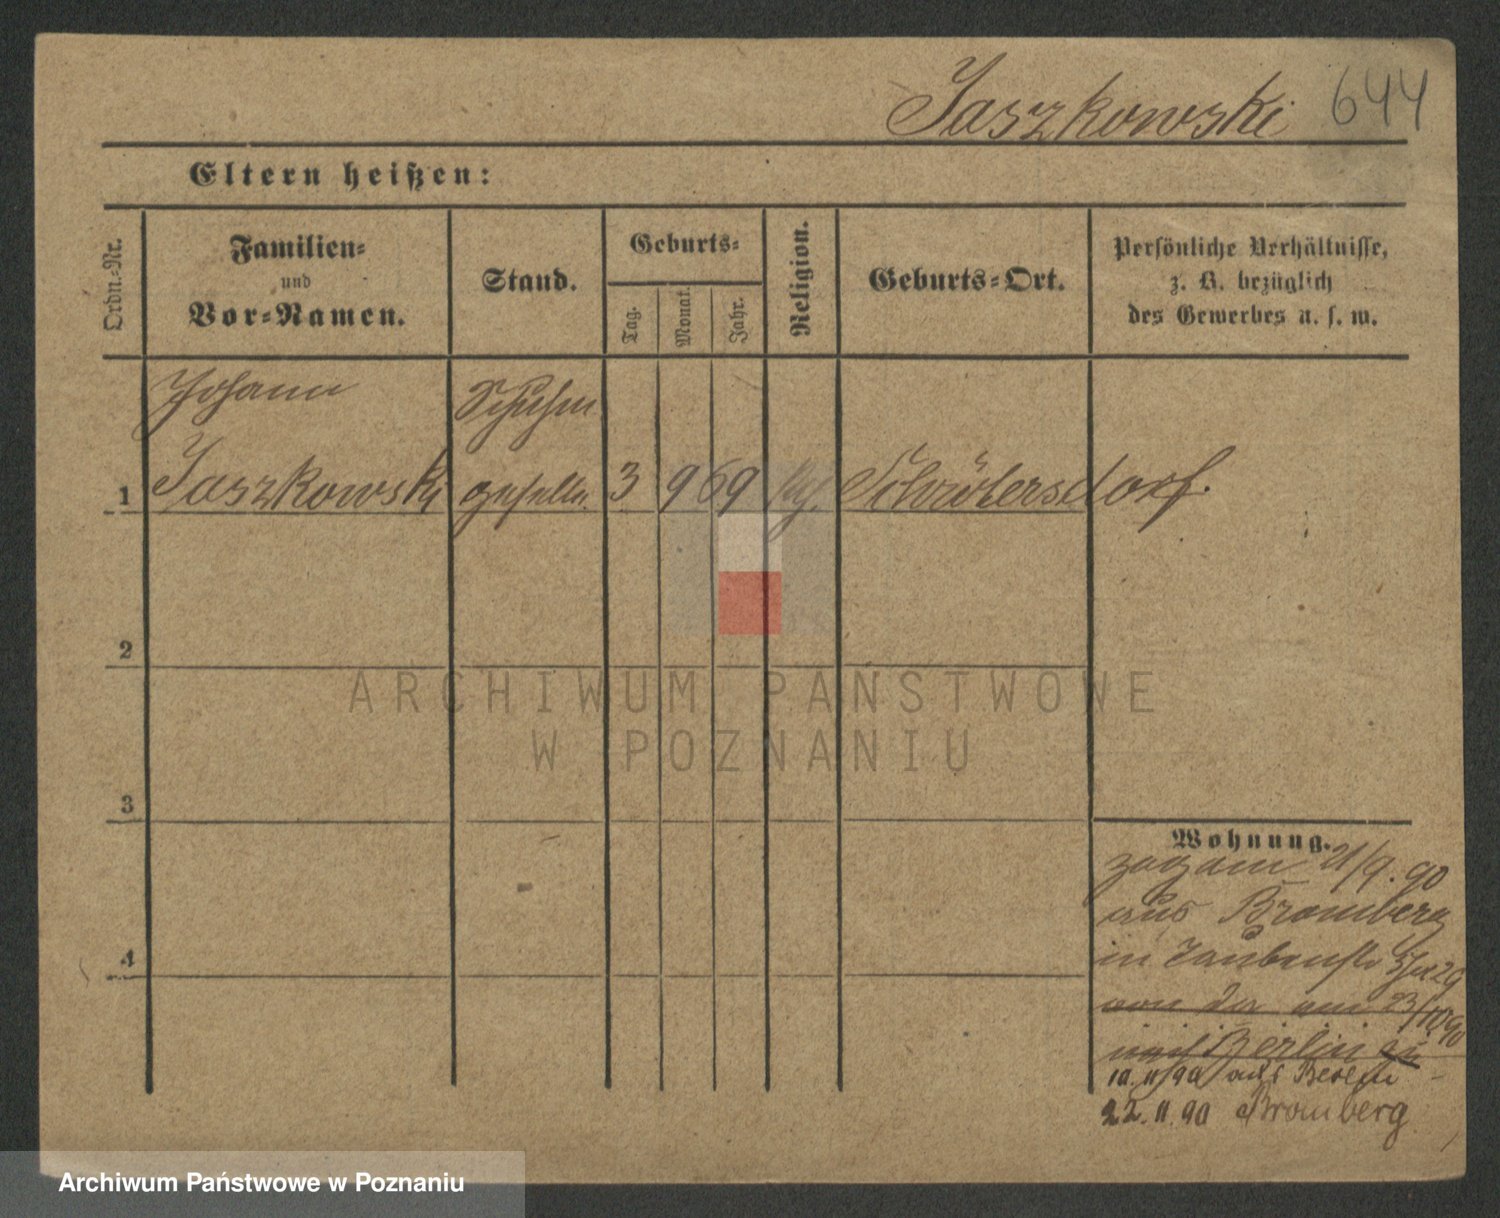 Jaszkowski 644
Eltern heißen:
Ordn.-Nr.
Familien-
und
Vor-Namen.
Stand.
Geburts-
Tag.
Monat.
Jahr.
Religion.
Geburts-Ort.
Persönliche Verhältnisse,
z. B. bezüglich
des Gewerbes u. s. w.
Johann Schuhm
1 Jaszkowski geselle 3 9 69 Schröttersdorf.
2
ARCHIWUM PAŃSTWOWE
W POZNANIU
3
4
Wohnung.
zog am 21/9. 90
aus Bromberg
in Taubenstr
von da am 23/10 90
nach Berlin
10. 11/90 aus
22. 11. 90 Bromberg
Archiwum Państwowe w Poznaniu